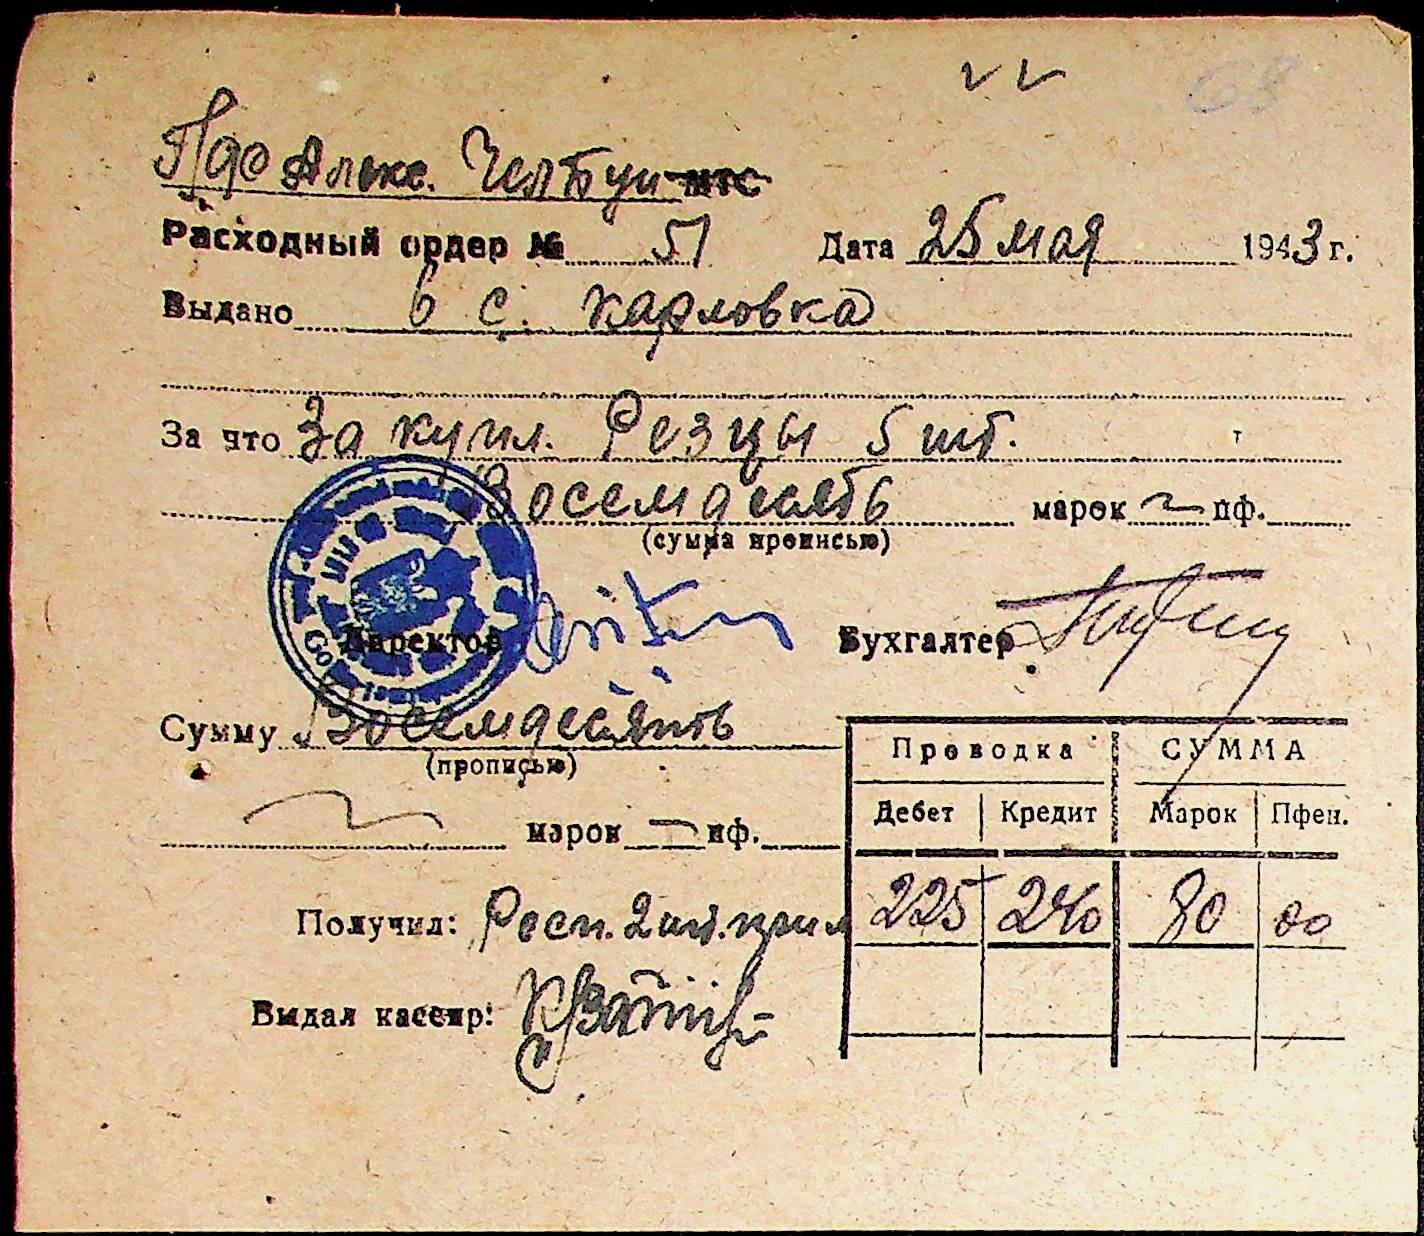 68
Алекс. МТС
Расходный ордер № 51 Дата 25 мая 1943 г.
Выдано в с. Карловка
За что За купл. Резцы 5 шт.
Восемдесять марок — пф.
(сумма прописью)
Директор Бухгалтер
Сумму Восемдесять
(прописью)
марок — пф.
Проводка СУММА
Дебет Кредит Марок Пфен.
225 240 80 00
Получил:
Выдал кассир: